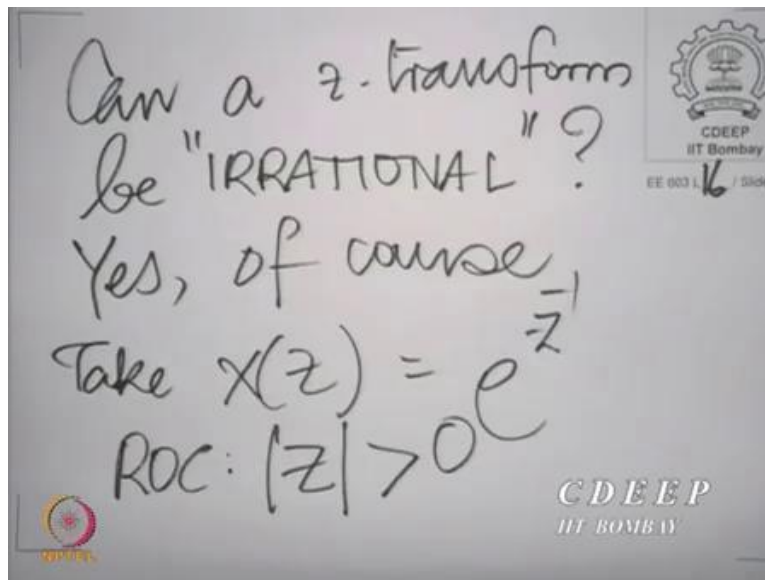 Can a z-transform
be "IRRATIONAL"?
Yes, of course
Take X(z) = e^{z^{-1}}
ROC: |z| > 0
CDEEP
IIT Bombay
EE 603 L 16 / Slide
CDEEP
IIT BOMBAY
NPTEL